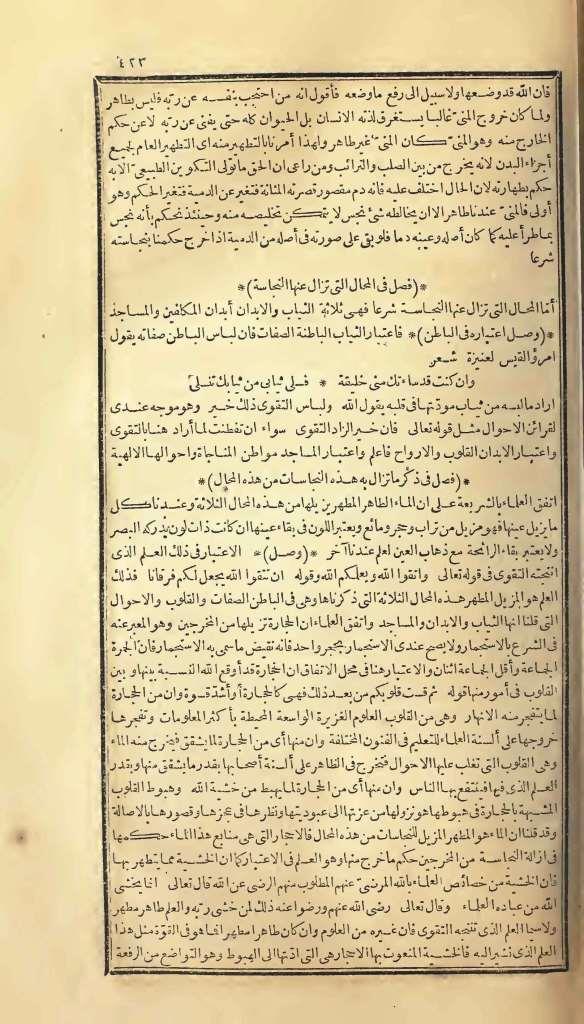 ٤٢٣
فان الله قد وضعها ولا سبيل الى رفع ما وضعه فأقول انه من احتجب بنفسه عن ربه فليس بطاهر
ولما كان خروج المنى غالبا يستغرق لذته الانسان بل الحيوان كله حتى يفنى عن ربه لا عن حكم
الخارج منه وهو المنى كان المنى غير طاهر ولهذا أمرنا بالتطهير منه اى التطهير العام لجميع
أجزاء البدن لانه يخرج من بين الصلب والترائب ومن راعى ان الحق ما تولى التكوين الطبيعى الا به
حكم بطهارته لان الحال اختلف عليه فانه دم مقصور قصرته المثانة فتغير عن الدمية فتغير الحكم وهو
أولى فالمنى عندنا طاهر الا ان يخالطه شئ نجس لا يتمكن تخليصه منه وحينئذ نحكم بأنه نجس
بما طرأ عليه كما كان أصله وعينه دما فلو بقى على صورته فى أصله من الدمية اذا خرج حكمنا بنجاسته
شرعا
*(فصل فى المحال التى تزال عنها النجاسة)*
أما المحال التى تزال عنها النجاسة شرعا فهى ثلاثة الثياب والابدان أبدان المكلفين والمساجد
*(وصل اعتباره فى الباطن)* فاعتبار الثياب الباطنة الصفات فان لباس الباطن صفاته يقول
امرؤ القيس لعنيزة شعر
وان كنت قد ساءتك منى خليقة * فسلى ثيابى من ثيابك تنسلى
اراد ما لبسه من ثياب مودتها فى قلبه يقول الله ولباس التقوى ذلك خير وهو موجه عندى
لقرائن الاحوال مثل قوله تعالى فان خير الزاد التقوى سواء ان تفطنت لما أراد هنا بالتقوى
واعتبار الابدان القلوب والارواح فاعلم واعتبار المساجد مواطن المناجاة واحوالها الالهية
*(فصل فى ذكر ما تزال به هذه النجاسات من هذه المحال)*
اتفق العلماء بالشريعة على ان الماء الطاهر المطهر يزيلها من هذه المحال الثلاثة وعندنا كل
ما يزيل عينها فهو مزيل من تراب وحجر ومائع ويعتبر اللون فى بقاء عينها ان كانت ذات لون يدركه البصر
ولا يعتبر بقاء الرائحة مع ذهاب العين لعلم عندنا آخر *(وصل)* الاعتبار فى ذلك العلم الذى
انتجته التقوى فى قوله تعالى واتقوا الله ويعلمكم الله وقوله ان تتقوا الله يجعل لكم فرقانا فذلك
العلم هو المزيل المطهر هذه المحال الثلاثة التى ذكرناها وهى فى الباطن الصفات والقلوب والاحوال
التى قلنا انها الثياب والابدان والمساجد واتفق العلماء ان الحجارة تزيلها من المخرجين وهو المعبر عنه
فى الشرع بالاستجمار ولا يصح عندى الاستجمار بحجر واحد فانه نقيض ما سمى به الاستجمار فان الجمرة
الجماعة وأقل الجماعة اثنان والاعتبار هنا فى محل الاتفاق ان الحجارة قد أوقع الله النسبة بينها وبين
القلوب فى أمور منها قوله ثم قست قلوبكم من بعد ذلك فهى كالحجارة أو أشد قسوة وان من الحجارة
لما يتفجر منه الانهار وهى من القلوب العلوم الغزيرة الواسعة المحيطة بأكثر المعلومات وتفجرها
خروجها على ألسنة العلماء للتعليم فى الفنون المختلفة وان منها أى من الحجارة لما يشقق فيخرج منه الماء
وهى القلوب التى تغلب عليها الاحوال فتخرج فى الظاهر على ألسنة أصحابها بقدر ما يشقق منها وبقدر
العلم الذى فيها فينتفع بها الناس وان منها أى من الحجارة لما يهبط من خشية الله وهبوط القلوب
المشبهة بالحجارة فى هبوطها هو نزولها من عزتها الى عبوديتها ونظرها فى عجزها وقصورها بالاصالة
وقد قلنا ان الماء هو المطهر المزيل للنجاسات من هذه المحال فالاحجار التى هى منابع هذا الماء حكمها
فى ازالة النجاسة من المخرجين حكم ما خرج منها وهو العلم فى الاعتبار كما ان الخشية مما يتطهر بها
فان الخشية من خصائص العلماء بالله المرضى عنهم المطلوب منهم الرضى عن الله قال تعالى انما يخشى
الله من عباده العلماء وقال تعالى رضى الله عنهم ورضوا عنه ذلك لمن خشى ربه والعلم طاهر مطهر
ولا سيما العلم الذى تنتجه التقوى فان غيره من العلوم وان كان طاهرا مطهرا فما هو فى القوة مثل هذا
العلم الذى نشير اليه فالخشية المنعوت بها الاحجار هى التى ادتها الى الهبوط وهو التواضع من الرفعة